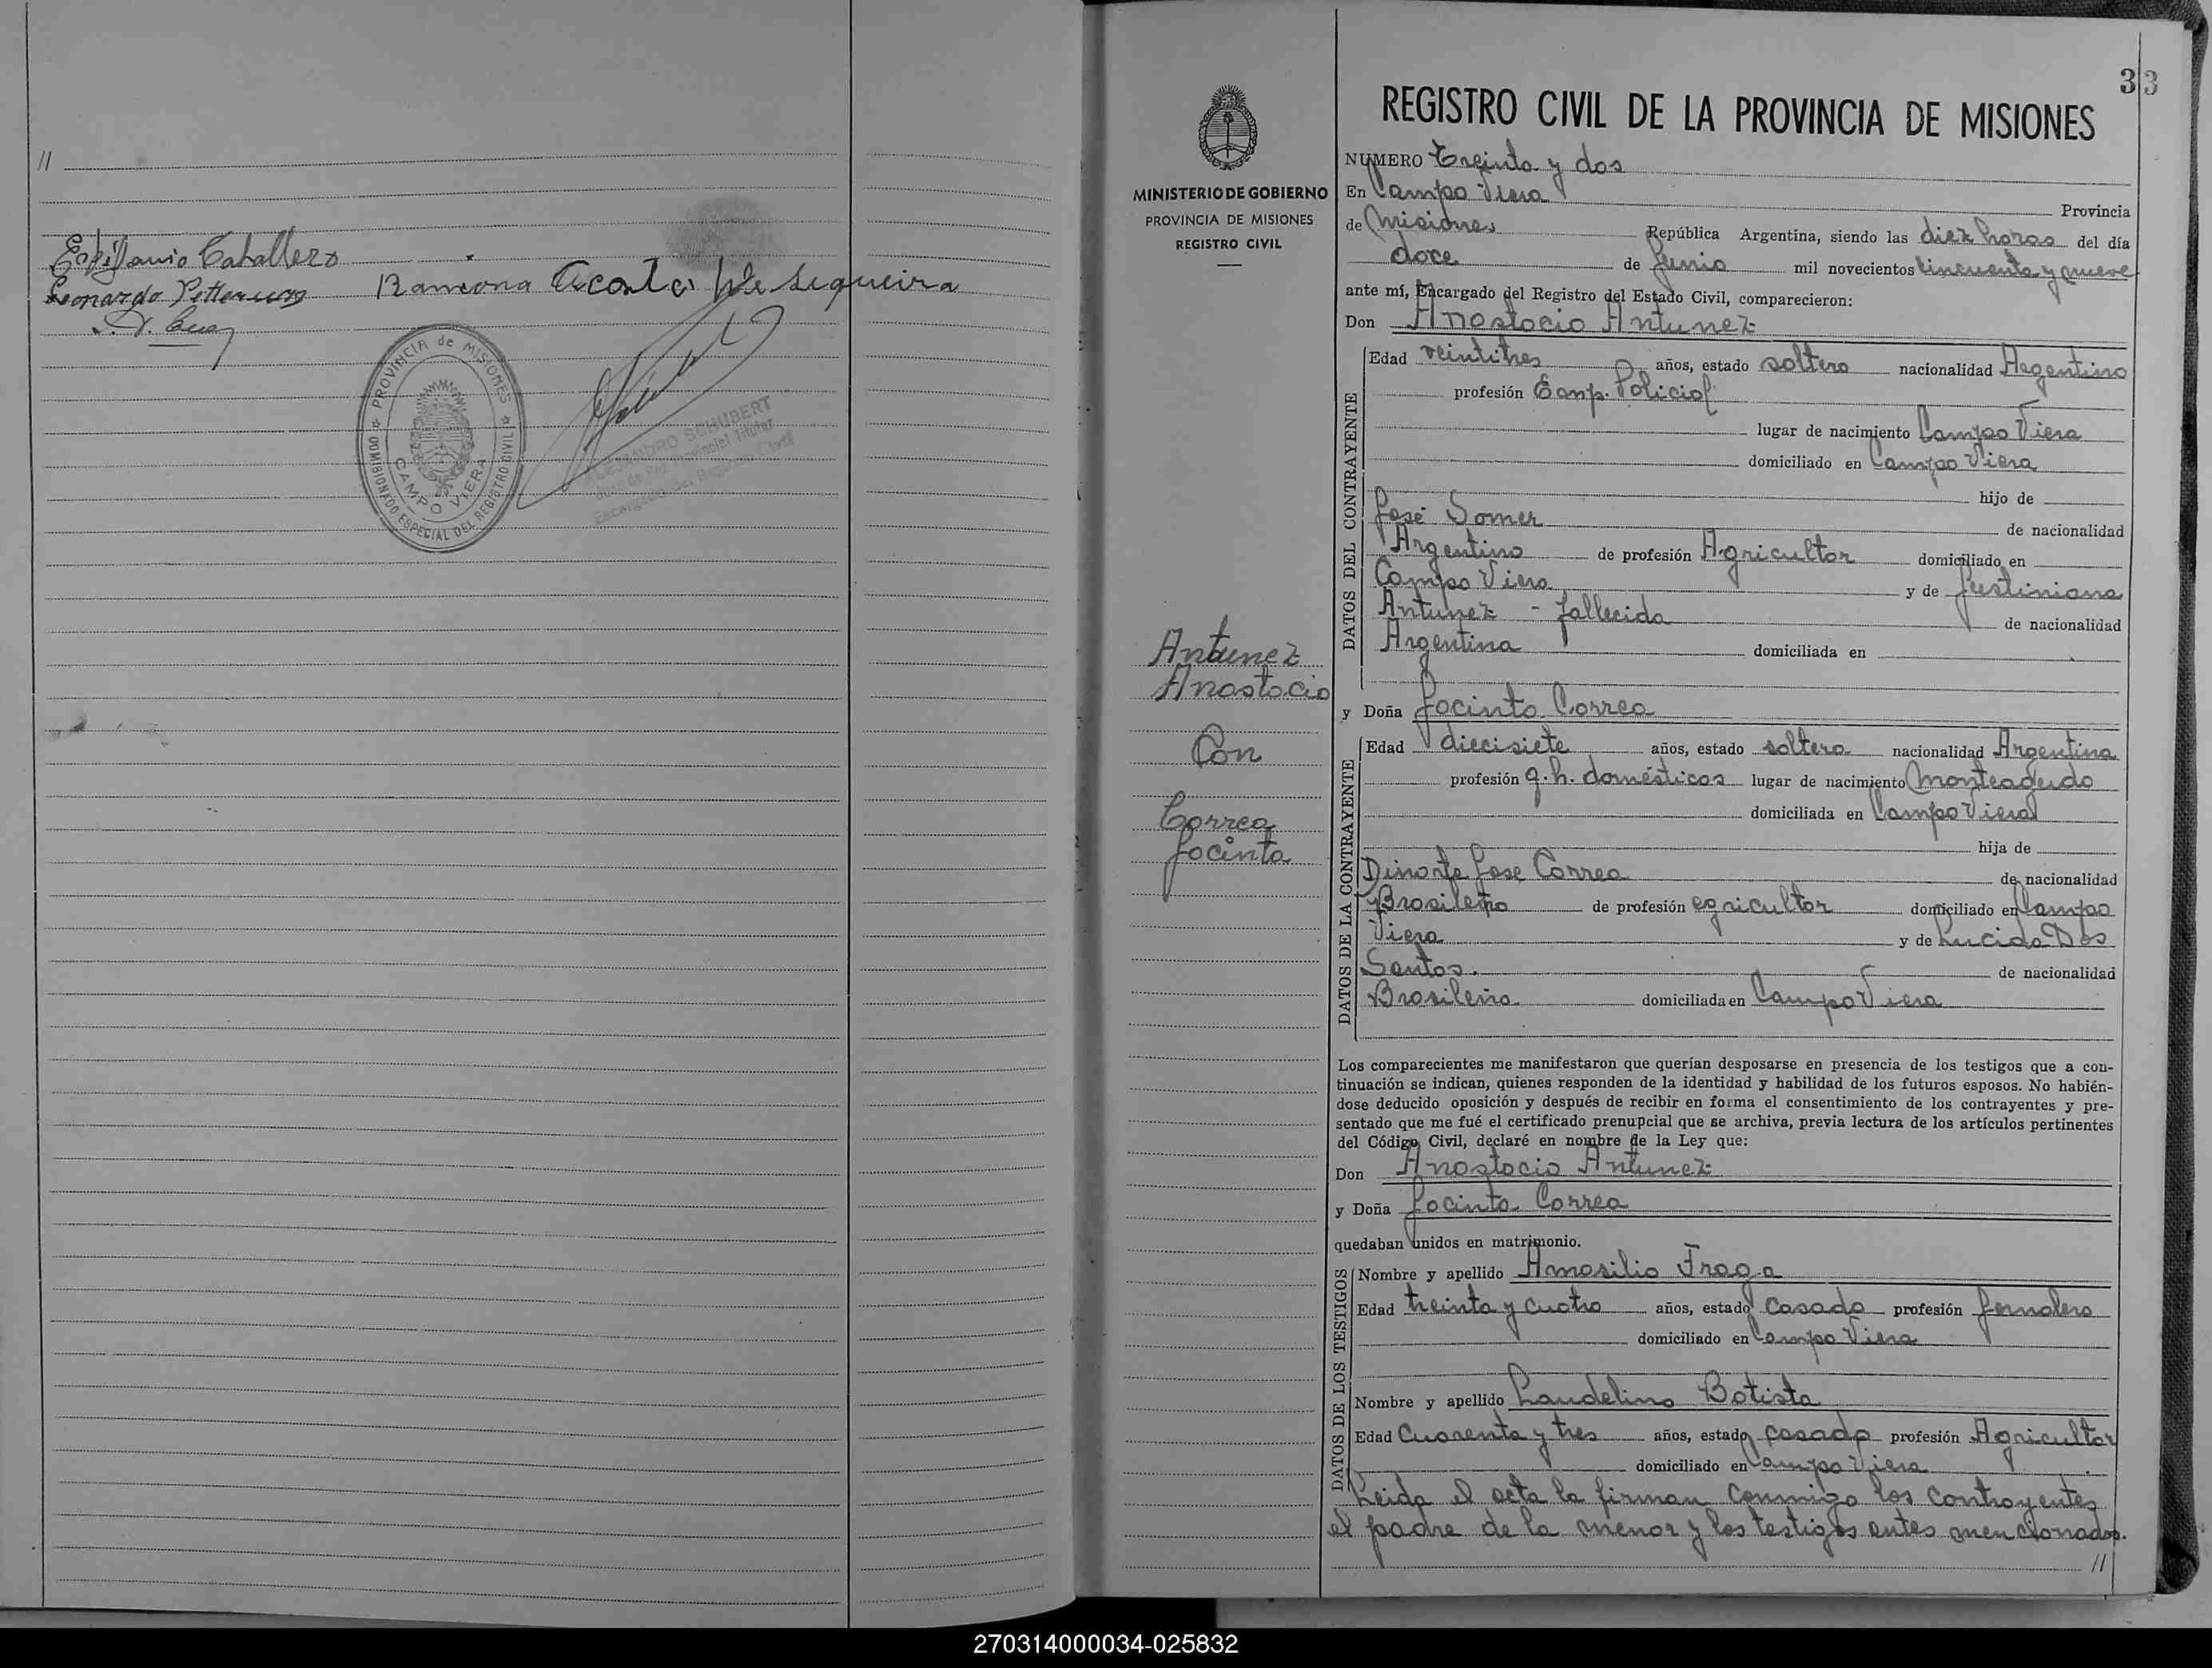 //
Epifanio Caballero
Leonardo
Ramona Acosta de Sequeira
PROVINCIA de MISIONES
CAMPO VIERA
COMISIONADO ESPECIAL DEL REGISTRO CIVIL
ALEJANDRO SCHUBERT
Juez de Paz Provincial Titular
Encargado del Registro Civil
33
MINISTERIO DE GOBIERNO
PROVINCIA DE MISIONES
REGISTRO CIVIL
Antunez
Anastacio
Con
Correa
Jacinta
REGISTRO CIVIL DE LA PROVINCIA DE MISIONES
NUMERO Treinta y dos
En Campo Viera
Provincia
de Misiones República Argentina, siendo las diez horas del día
doce de Junio mil novecientos cincuenta y nueve
ante mí, Encargado del Registro del Estado Civil, comparecieron:
Don Anastacio Antunez
DATOS DEL CONTRAYENTE
Edad veintitres años, estado soltero nacionalidad Argentino
profesión Emp. Policial
lugar de nacimiento Campo Viera
domiciliado en Campo Viera
hijo de
José Somer de nacionalidad
Argentino de profesión Agricultor domiciliado en
Campo Viera y de Justiniana
Antunez - fallecida de nacionalidad
Argentina domiciliada en
y Doña Jacinta Correa
DATOS DE LA CONTRAYENTE
Edad diecisiete años, estado soltera nacionalidad Argentina
profesión q.h. domésticos lugar de nacimiento Monteagudo
domiciliada en Campo Viera
hija de
Dinarte Jose Correa de nacionalidad
Brasileño de profesión agricultor domiciliado en Campo
Viera y de Lucida Dos
Santos. de nacionalidad
Brasileña domiciliada en Campo Viera
Los comparecientes me manifestaron que querían desposarse en presencia de los testigos que a con-
tinuación se indican, quienes responden de la identidad y habilidad de los futuros esposos. No habién-
dose deducido oposición y después de recibir en forma el consentimiento de los contrayentes y pre-
sentado que me fué el certificado prenupcial que se archiva, previa lectura de los artículos pertinentes
del Código Civil, declaré en nombre de la Ley que:
Don Anastacio Antunez
y Doña Jacinta Correa
quedaban unidos en matrimonio.
DATOS DE LOS TESTIGOS
Nombre y apellido Amasilio Fraga
Edad treinta y cuatro años, estado casado profesión Jornalero
domiciliado en Campo Viera
Nombre y apellido Laudelino Batista
Edad Cuarenta y tres años, estado casado profesión Agricultor
domiciliado en Campo Viera
Leida el acta la firman conmigo los contrayentes
el padre de la menor y los testigos antes mencionados.
//
270314000034-025832